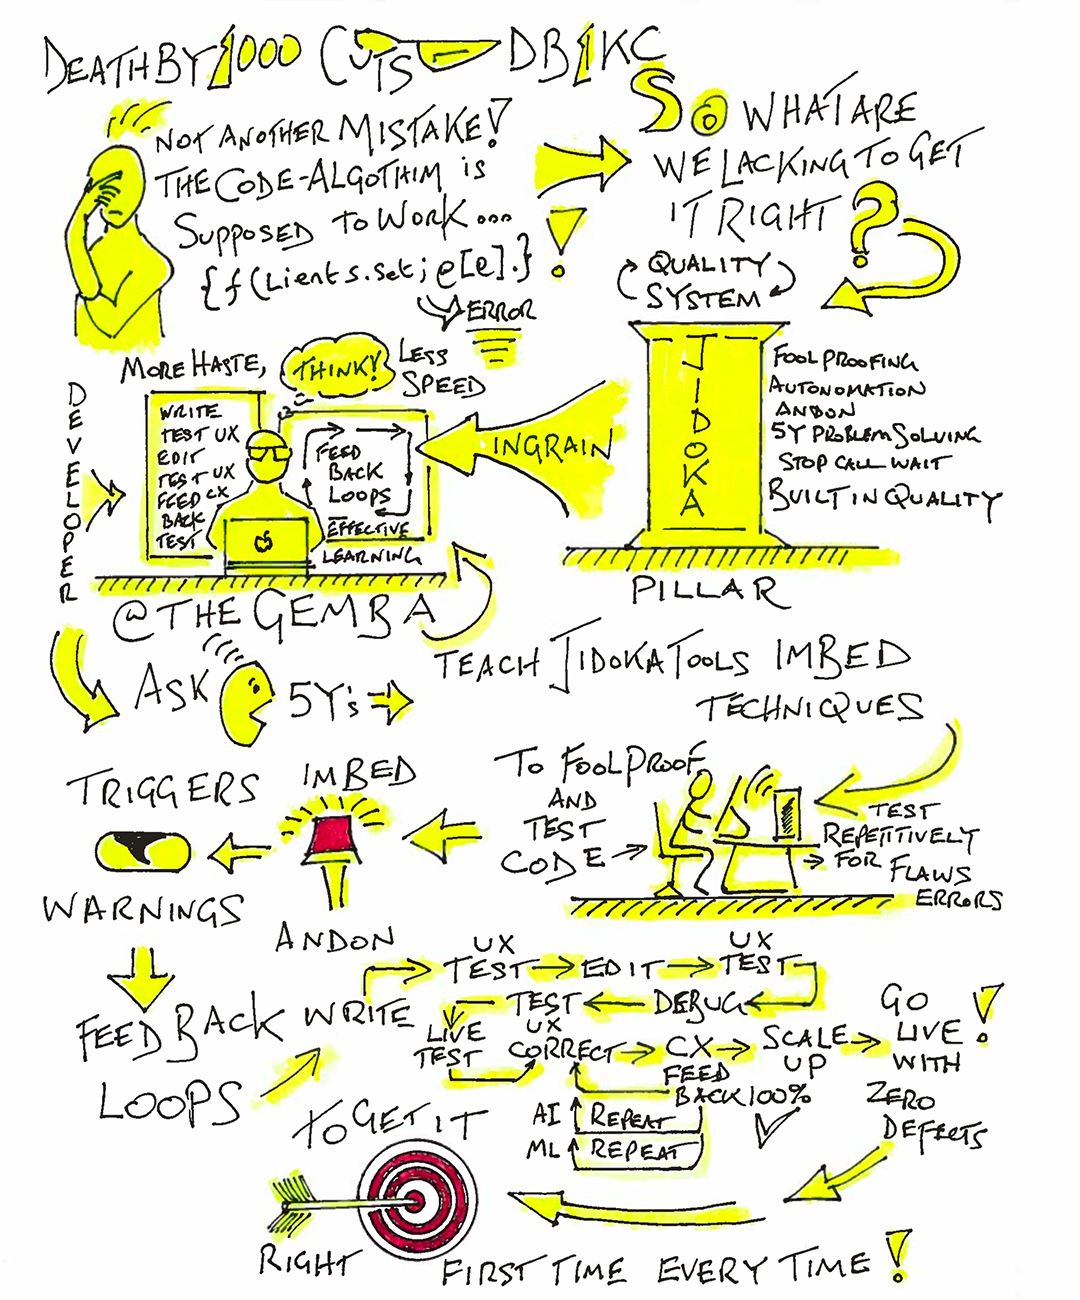 DEATH BY 1000 CUTS DB1KC
NOT ANOTHER MISTAKE!
THE CODE-ALGOTHIM IS
SUPPOSED TO WORK...
{f(Lients.set; e[e].}
ERROR
!
SO WHAT ARE
WE LACKING TO GET
IT RIGHT?
QUALITY
SYSTEM
JIDOKA
FOOL PROOFING
AUTONOMATION
ANDON
5Y PROBLEM SOLVING
STOP CALL WAIT
BUILT IN QUALITY
PILLAR
INGRAIN
MORE HASTE,
THINK!
LESS
SPEED
DEVELOPER
WRITE
TEST UX
EDIT
TEST UX
FEED CX
BACK
TEST
FEED
BACK
LOOPS
EFFECTIVE
LEARNING
@ THE GEMBA
TEACH JIDOKA TOOLS IMBED
TECHNIQUES
ASK 5Y's
TO FOOLPROOF
AND
TEST
CODE
TEST
REPETITIVELY
FOR FLAWS
ERRORS
IMBED
ANDON
TRIGGERS
WARNINGS
FEED BACK
LOOPS
WRITE
UX
TEST EDIT
UX
TEST
DEBUG
TEST
LIVE
TEST
UX
CORRECT
CX
FEED
BACK 100%
SCALE
UP
GO
LIVE !
WITH
ZERO
DEFECTS
AI REPEAT
ML REPEAT
TO GET IT
RIGHT
FIRST TIME EVERY TIME!